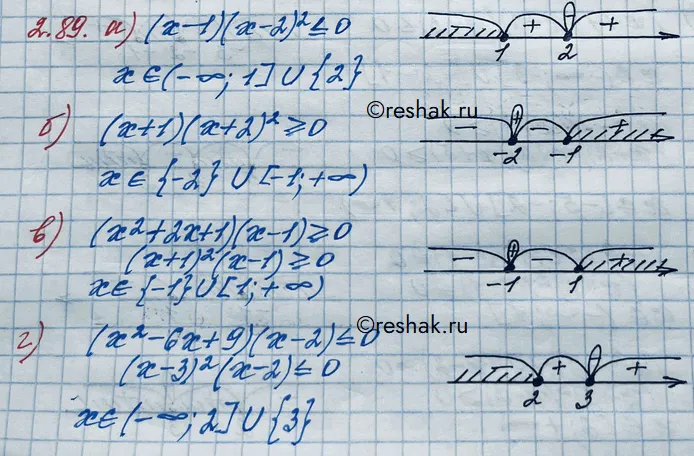 2.89. а) (x-1)(x-2)²≤0
- + +
1 2
x∈(-∞; 1]∪{2}
©reshak.ru
б) (x+1)(x+2)²≥0
- - +
-2 -1
x∈{-2}∪[-1;+∞)
в) (x²+2x+1)(x-1)≥0
(x+1)²(x-1)≥0
- - +
-1 1
x∈{-1}∪[1;+∞)
©reshak.ru
г) (x²-6x+9)(x-2)≤0
(x-3)²(x-2)≤0
- + +
2 3
x∈(-∞; 2]∪{3}